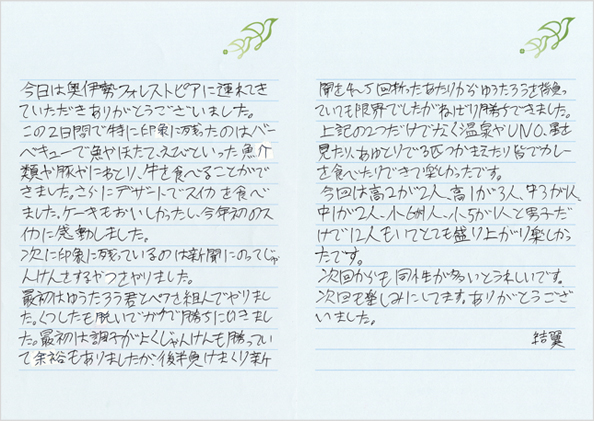 今日は奥伊勢フォレストピアに連れてき
ていただきありがとうございました。
この2日間で特に印象に残ったのはバー
ベキューで魚やほたて、えびといった魚介
類や豚やにわとり、牛を食べることがで
きました。さらにデザートでスイカを食べ
ました。ケーキもおいしかったし、今年初のス
イカに感動しました。
次に印象に残っているのは新聞にのってじゃ
んけんをするやつをやりました。
最初はゆうたろう君とペアを組んでやりまし
た。くつしたも脱いでガチで勝ちにいきまし
た。最初は調子がよくじゃんけんも勝ってい
て余裕もありましたが、後半負けまくり新
聞を4、5回折ったあたりからゆうたろうを背負っ
ていても限界でしたがねばり勝ちできました。
上記の2つだけでなく温泉やUNO、星を
見たり、あゆとりで3匹つかまえたり皆でカレー
を食べたりできて楽しかったです。
今回は高2が2人、高1が3人、中3が1人、
中1が2人、小6が1人、小5が1人と男子だ
けで12人もいてとても盛り上がり楽しかっ
たです。
次回からも同性が多いとうれしいです。
次回も楽しみにしてます。ありがとうござ
いました。
結翼